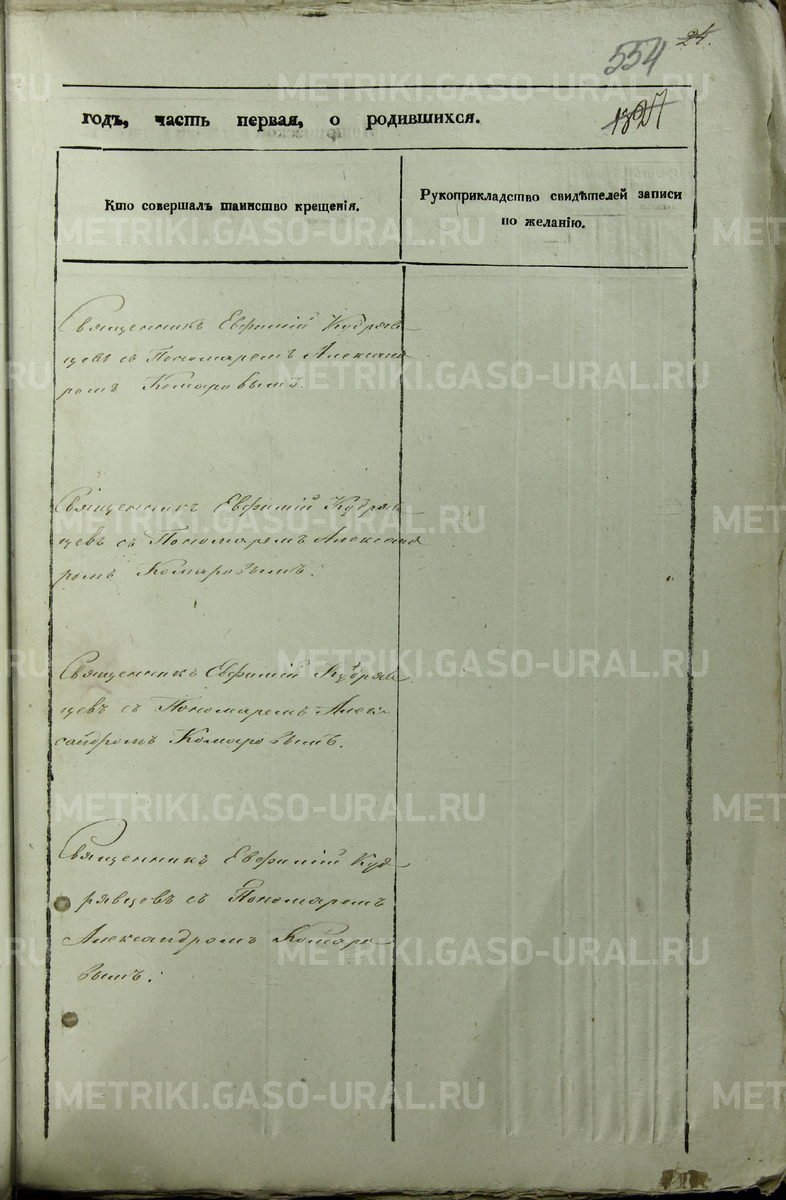 24.
554
1327
годъ, часть первая, о родившихся.
Кто совершалъ таинство крещенія.
Рукоприкладство свидѣтелей записи
по желанію.
Священникъ Евфимій Кудряв
цевъ съ Пономаремъ Алексан
ромъ Комаровымъ.
Священникъ Евфимій Кудряв
цевъ съ Пономаремъ Алексан
ромъ Комаровымъ.
Священникъ Евфимій Кудряв
цевъ съ Пономаремъ Алек
сандромъ Комаровымъ.
Священникъ Евфимій Куд
рявцевъ съ Пономаремъ
Александромъ Комаро
вымъ.
METRIKI.GASO-URAL.RU